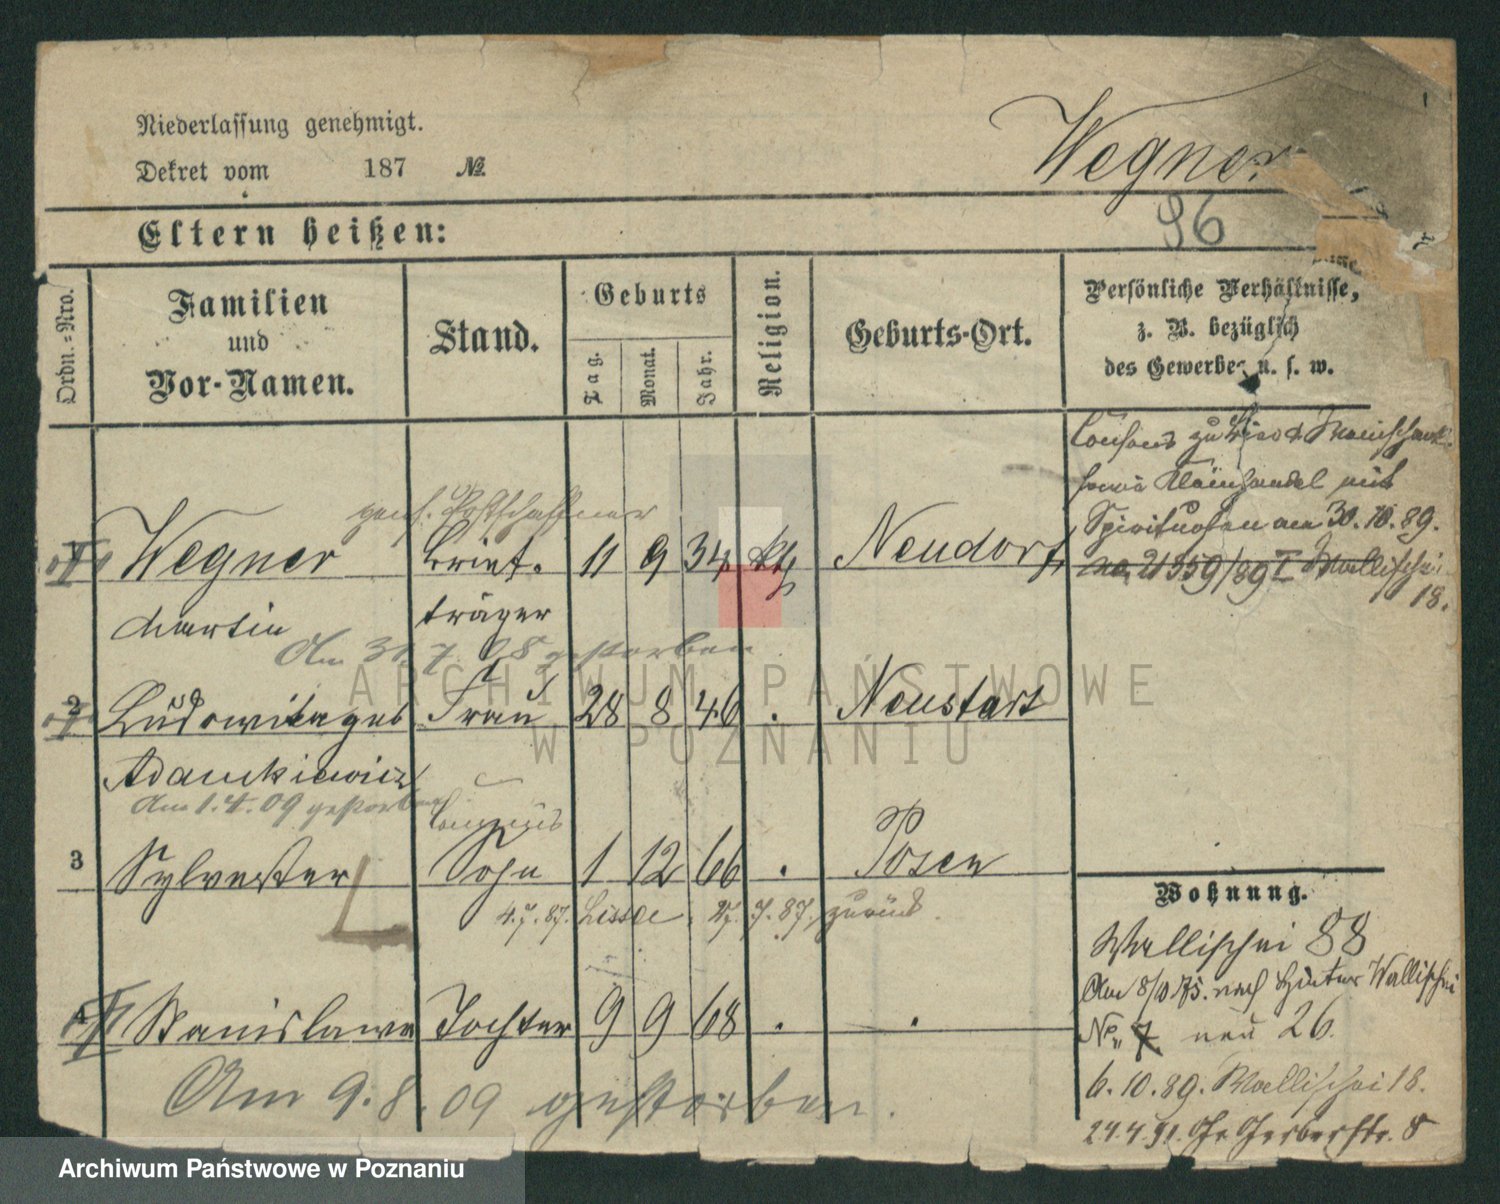 Niederlassung genehmigt.
Dekret vom 187 №
Wegner
96
Eltern heißen:
Ordn.-Nro.
Familien
und
Vor-Namen.
Stand.
Geburts
Tag.
Monat.
Jahr.
Religion.
Geburts-Ort.
Persönliche Verhältnisse,
z. B. bezüglich
des Gewerbes u. s. w.
Consens zu
sowie Kleinhandel mit
Spirituosen am 30.10.89.
no 21559/89 I Wallischei
18.
Postschaffner
1 Wegner Brief- 11 9 34 kth Neudorf
Martin träger
Am 31.7.08 gestorben
2 Ludowika geb Frau 28 8 46 . Neustadt
Adamkiewicz
Am 1.4.09 gestorben
3 Sylvester Sohn 1 12 66 . Posen
4.7.87. Lissa. 27.7.87. zurück.
4 Stanislawa Tochter 9 9 68 . .
Am 9.8.09 gestorben.
Wohnung.
Wallischei 88
Am 8/10 75. nach Hinter Wallischei
No. 7 neu 26.
6.10.89. Wallischei 18.
24.4.91. Gr. Gerberstr. 8
ARCHIWUM PAŃSTWOWE
W POZNANIU
Archiwum Państwowe w Poznaniu